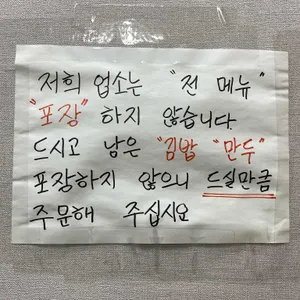 저희 업소는 "전 메뉴"
"포장" 하지 않습니다.
드시고 남은 "김밥 "만두"
포장하지 않으니 드실만큼
주문해 주십시요